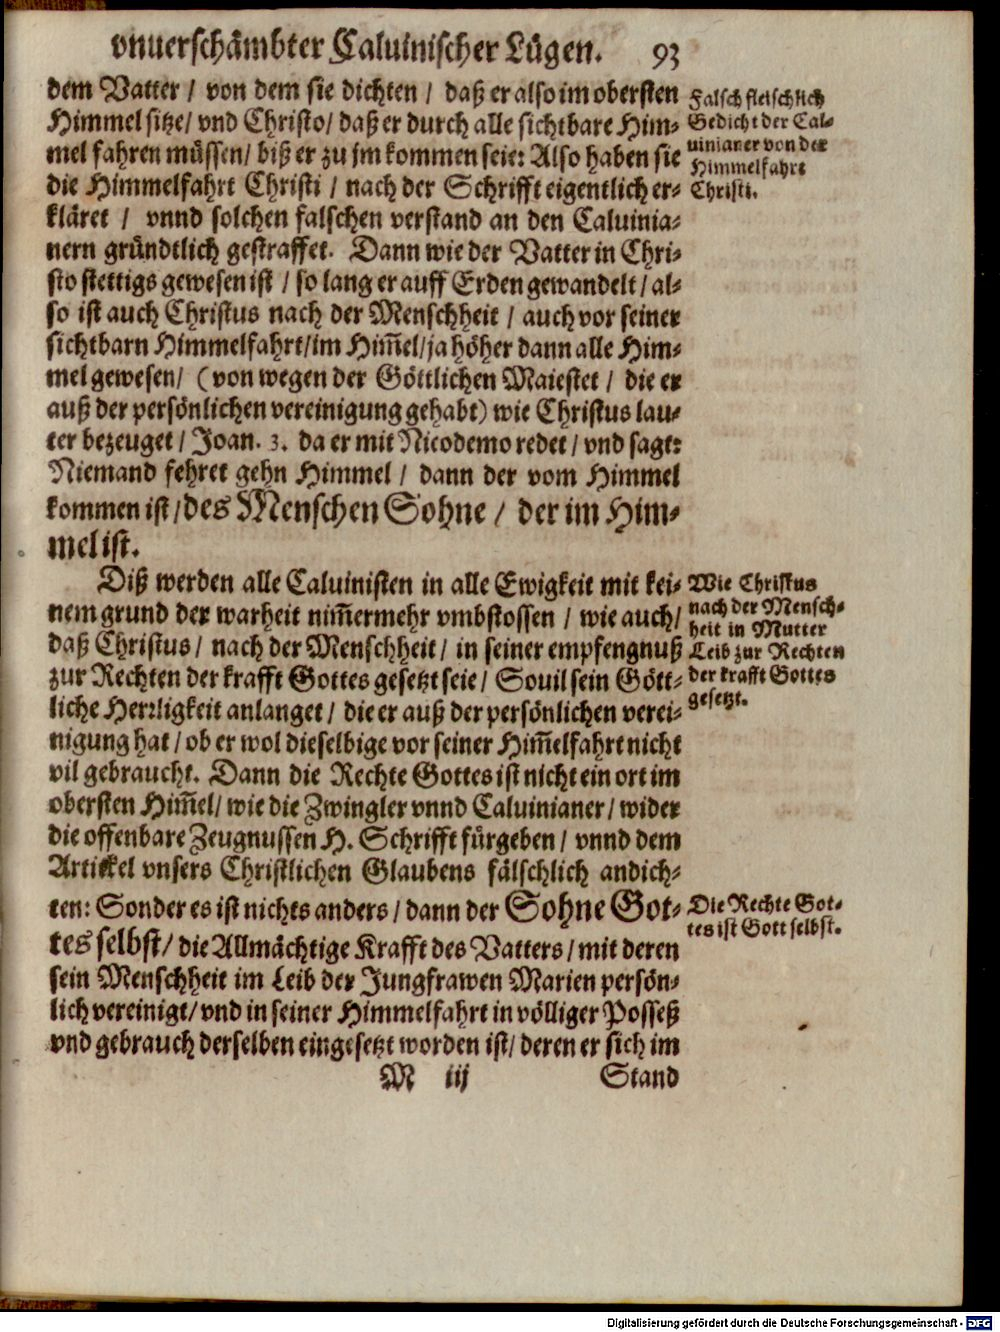 vnuerschämbter Caluinischer Lügen. 93
dem Vatter / von dem sie dichten / daß er also im obersten
Himmel sitze / vnd Christo / daß er durch alle sichtbare Him-
mel fahren müssen / biß er zu jm kommen seie: Also haben sie
die Himmelfahrt Christi / nach der Schrifft eigentlich er-
kläret / vnnd solchen falschen verstand an den Caluinia-
nern gründtlich gestraffet. Dann wie der Vatter in Chri-
sto stettigs gewesen ist / so lang er auff Erden gewandelt / al-
so ist auch Christus nach der Menschheit / auch vor seiner
sichtbarn Himmelfahrt / im Him̃el / ja höher dann alle Him-
mel gewesen / (von wegen der Göttlichen Maiestet / die er
auß der persönlichen vereinigung gehabt) wie Christus lau-
ter bezeuget / Joan. 3. da er mit Nicodemo redet / vnd sagt:
Niemand fehret gehn Himmel / dann der vom Himmel
kommen ist / des Menschen Sohne / der im Him-
mel ist.
Falsch fleischlich
Gedicht der Cal-
uinianer von der
Himmelfahrt
Christi.
Diß werden alle Caluinisten in alle Ewigkeit mit kei-
nem grund der warheit nim̃ermehr vmbstossen / wie auch /
daß Christus / nach der Menschheit / in seiner empfengnuß
zur Rechten der krafft Gottes gesetzt seie / Souil sein Gött-
liche Herrligkeit anlanget / die er auß der persönlichen verei-
nigung hat / ob er wol dieselbige vor seiner Him̃elfahrt nicht
vil gebraucht. Dann die Rechte Gottes ist nicht ein ort im
obersten Him̃el / wie die Zwingler vnnd Caluinianer / wider
die offenbare Zeugnussen H. Schrifft fürgeben / vnnd dem
Artickel vnsers Christlichen Glaubens fälschlich andich-
ten: Sonder es ist nichts anders / dann der Sohne Got-
tes selbst / die Allmächtige Krafft des Vatters / mit deren
sein Menschheit im Leib der Jungfrawen Marien persön-
lich vereinigt / vnd in seiner Himmelfahrt in völliger Posseß
vnd gebrauch derselben eingesetzt worden ist / deren er sich im
Wie Christus
nach der Mensch-
heit in Mutter
Leib zur Rechten
der krafft Gottes
gesetzt.
Die Rechte Got-
tes ist Gott selbst.
M iij Stand
Digitalisierung gefördert durch die Deutsche Forschungsgemeinschaft - DFG